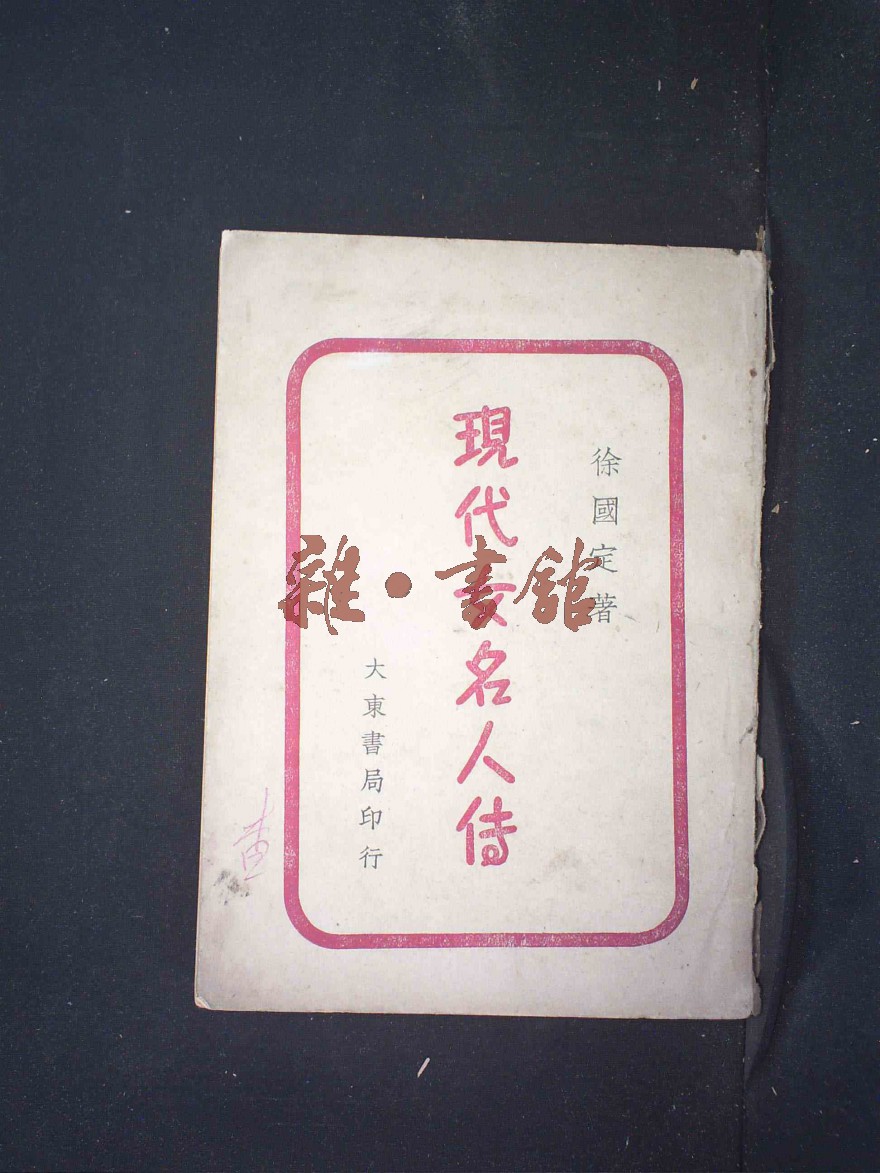 徐國定著
現代女名人传
大東書局印行
雜·書館
查